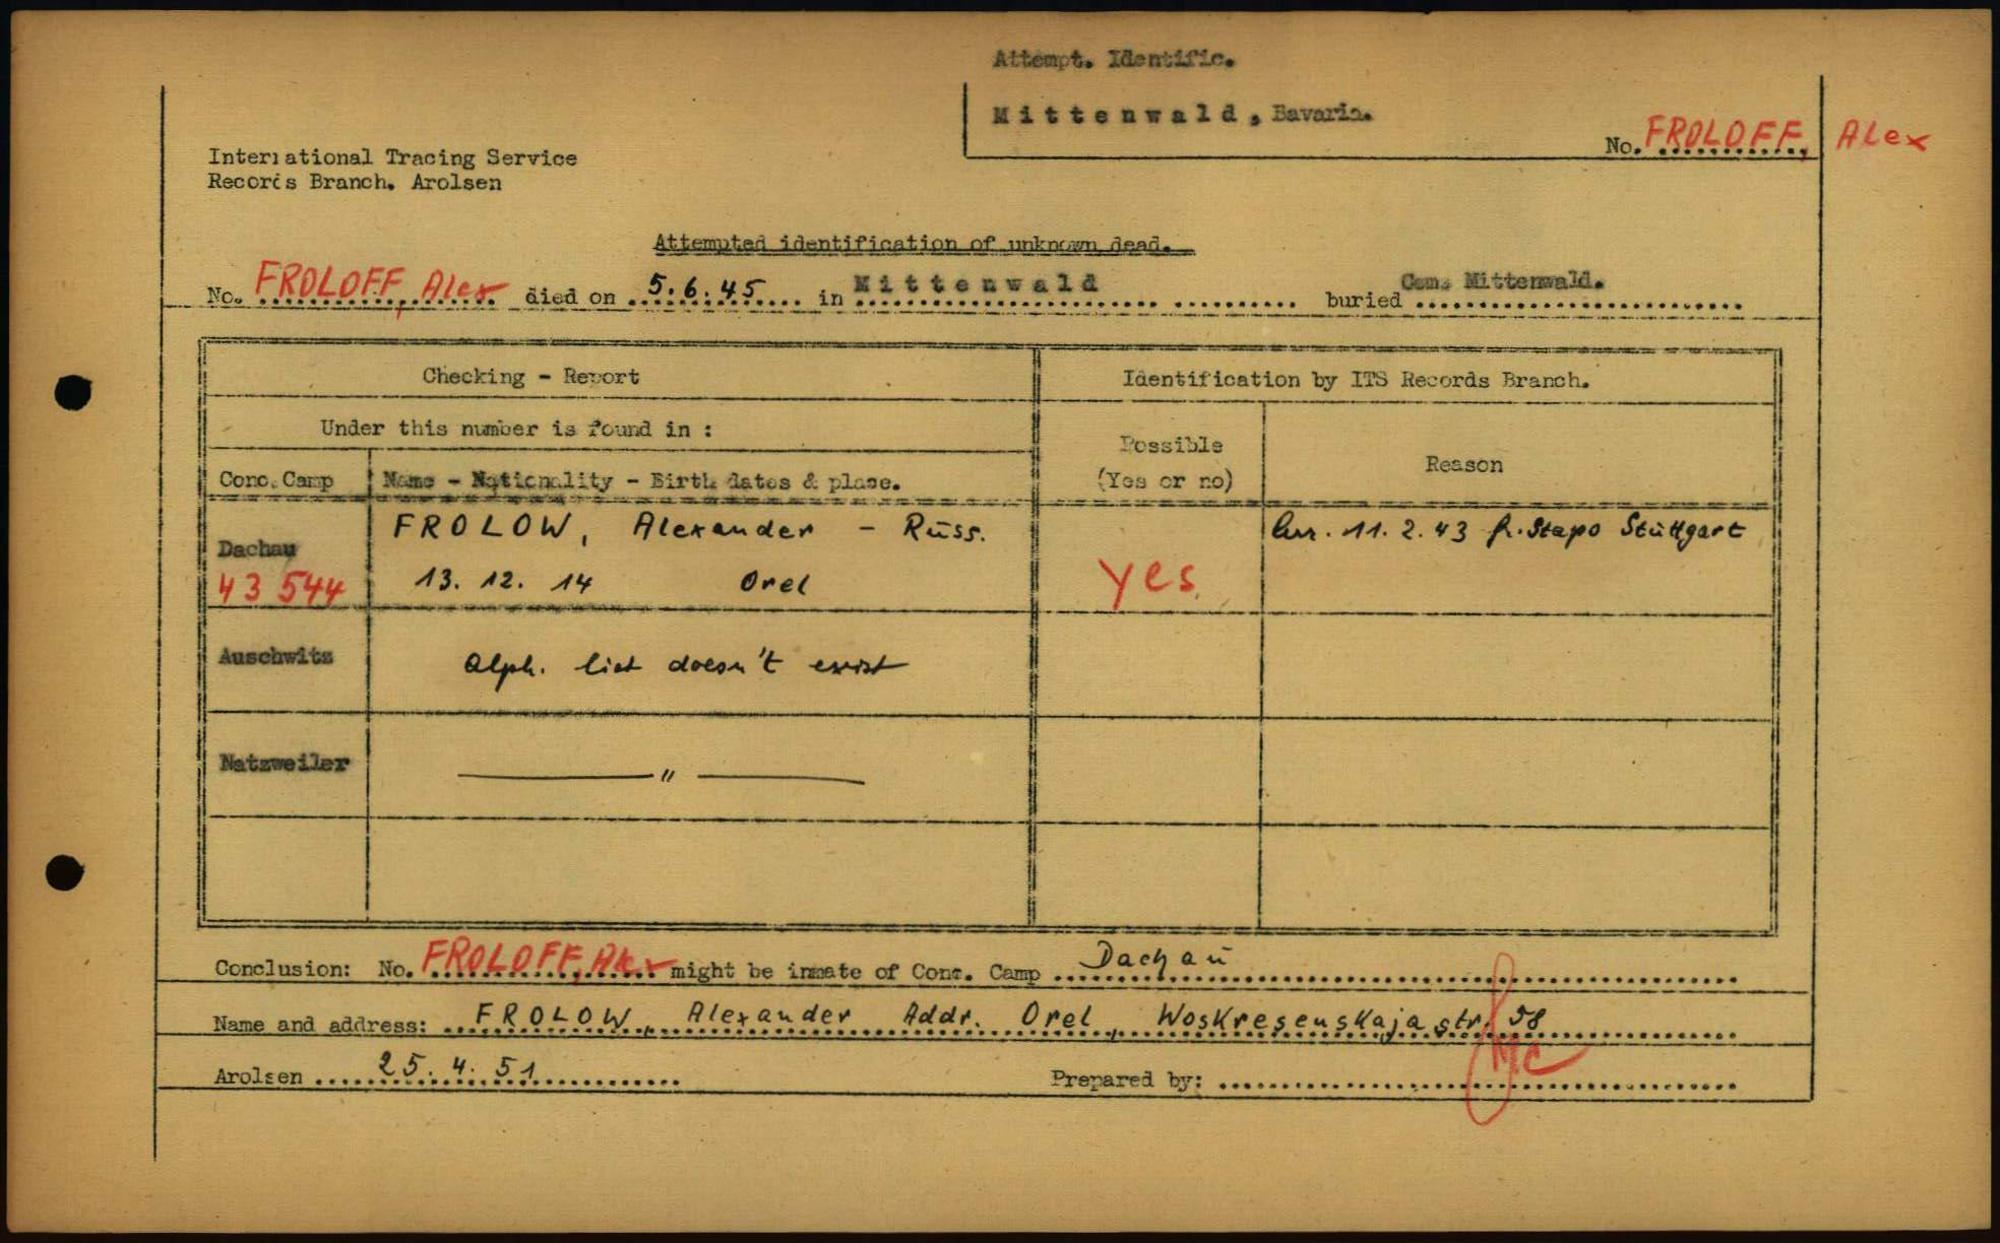 Attempt. Identific.
Mittenwald, Bavaria.
No. FROLOFF, Alex
International Tracing Service
Records Branch. Arolsen
Attempted identification of unknown dead.
No. FROLOFF, Alex died on 5.6.45 in Mittenwald buried Cem. Mittenwald.
Checking - Report
Identification by ITS Records Branch.
Under this number is found in :
Possible
(Yes or no)
Reason
Conc. Camp
Name - Nationality - Birth dates & place.
Dachau
43 544
FROLOW, Alexander - Russ.
13. 12. 14 Orel
yes
11. 2. 43 fr. Stapo Stuttgart
Auschwitz
Alph. list doesn't exist
Natzweiler
— " —
Conclusion: No. FROLOFF, Alex might be inmate of Conc. Camp Dachau
Name and address: FROLOW, Alexander Addr. Orel, Woskresenskaja str. 58
Arolsen 25. 4. 51
Prepared by: